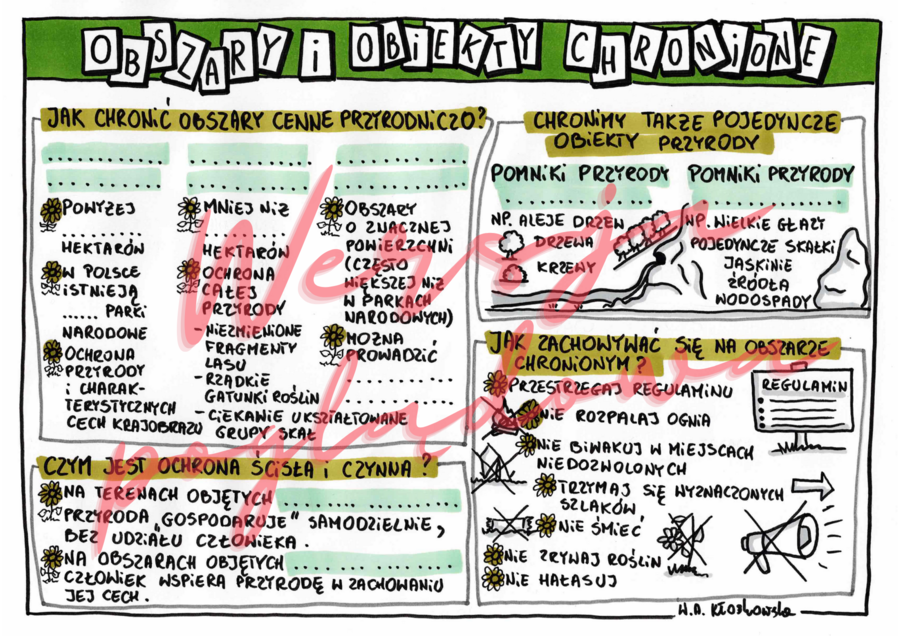 OBSZARY i OBiEKTY CHRONiONE
JAK CHRONIĆ OBSZARY CENNE PRZYRODNICZO?
POWYŻEJ
.........
HEKTARÓW
W POLSCE
iSTNIEJĄ
...... PARKI
NARODOWE
OCHRONA
PRZYRODY
i CHARAK-
TERYSTYCZNYCH
CECH KRAJOBRAZU
MNIEJ NIŻ
.........
HEKTARÓW
OCHRONA
CAŁEJ
PRZYRODY
- NIEZMIENIONE
FRAGMENTY
LASU
- RZADKIE
GATUNKI ROŚLIN
- CIEKAWIE UKSZTAŁTOWANE
GRUPY SKAŁ
OBSZARY
O ZNACZNEJ
POWIERZCHNI
(CZĘSTO
WIĘKSZEJ NIŻ
W PARKACH
NARODOWYCH)
MOŻNA
PROWADZIĆ
CZYM JEST OCHRONA ŚCISŁA i CZYNNA?
NA TERENACH OBJĘTYCH
PRZYRODA „GOSPODARUJE" SAMODZIELNIE,
BEZ UDZIAŁU CZŁOWIEKA.
NA OBSZARACH OBJĘTYCH
CZŁOWIEK WSPIERA PRZYRODĘ W ZACHOWANIU
JEJ CECH.
CHRONIMY TAKŻE POJEDYNCZE
OBIEKTY PRZYRODY
POMNIKI PRZYRODY
NP. ALEJE DRZEW
DRZEWA
KRZEWY
POMNIKI PRZYRODY
NP. WIELKIE GŁAZY
POJEDYNCZE SKAŁKI
JASKINIE
ŹRÓDŁA
WODOSPADY
JAK ZACHOWYWAĆ SIĘ NA OBSZARZE
CHRONIONYM?
PRZESTRZEGAJ REGULAMINU
NIE ROZPALAJ OGNIA
NIE BIWAKUJ W MIEJSCACH
NIEDOZWOLONYCH
TRZYMAJ SIĘ WYZNACZONYCH
SZLAKÓW
NIE ŚMIEĆ
NIE ZRYWAJ ROŚLIN
NIE HAŁASUJ
REGULAMIN
Wersja
poglądowa
W.A. Kłoskowska